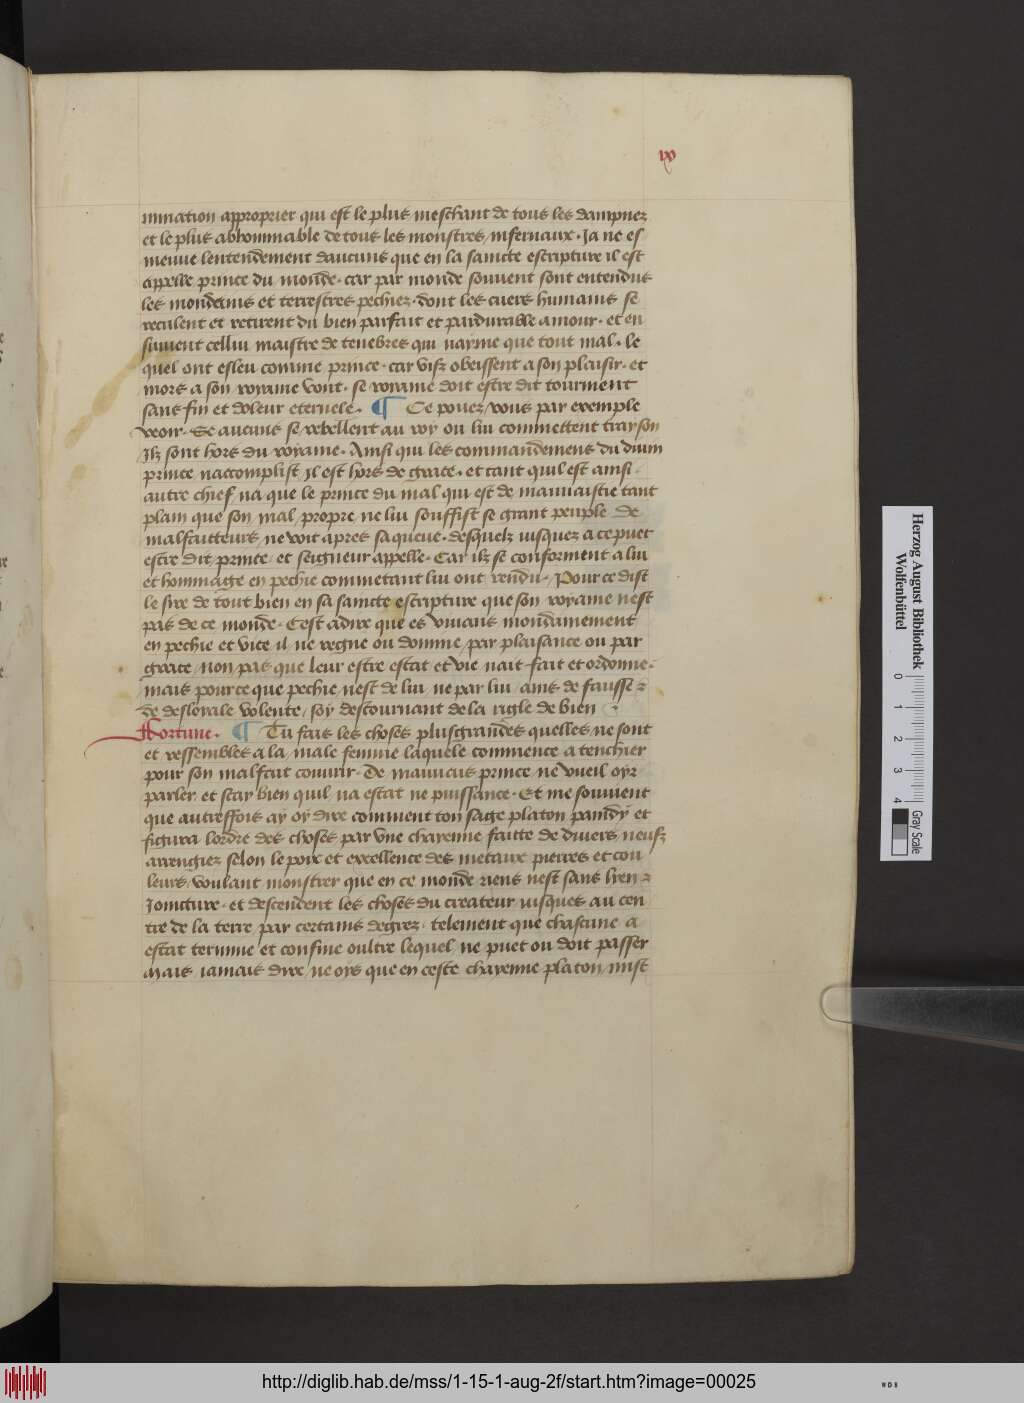 ix
mination approprier qui est le plus meschant de tous les dampnez
et le plus abhominable de tous les monstres infernaux. Ja ne es
meuue lentendement daucuns que en la saincte escripture il est
appelle prince du monde. car par monde souuent sont entendus
les mondains et terrestres pechiez. dont les cuers humains se
reculent et retirent du bien parfait et pardurable amour. et en
suiuent cellui maistre de tenebres qui nayme que tout mal. le
quel ont esleu comme prince. car vifz obeissent a son plaisir. et
mors a son royaume vont. se royaume doit estre dit tourment
sans fin et doleur eternele. ¶ Ce pouez vous par exemple
veoir. Se aucuns se rebellent au roy ou lui commettent trayson
Ilz sont hors du royaume. Ainsi qui les commandemens du diuin
prince naccomplist Il est hors de grace. et tant quil est ainsi.
autre chief na que le prince du mal qui est de mauuaistie tant
plain que son mal propre ne lui souffist se grant peuple de
malfaitteurs ne voit apres sa queue. desquelz iusquez a ce puet
estre dit prince et seigneur appelle. Car ilz se conforment a lui
et hommage en pechie commettant lui ont rendu. Pour ce dist
le sire de tout bien en sa saincte escripture que son royaume nest
pas de ce monde. Cest adire que es viuans mondainement
en pechie et vice il ne regne ou domine par plaisance ou par
grace. non pas que leur estre estat et vie nait fait et ordonne.
mais pour ce que pechie nest de lui ne par lui. ains de fausse
de desloyale volente soy destournant de la rigle de bien
Fortune. ¶ Tu fais les choses plusgrandes quelles ne sont
et ressembles a la male femme laquele commence a tenchier
pour son malfait couurir. De mauuais prince ne vueil oyr
parler. et scay bien quil na estat ne puissance. Et me souuient
que autreffois ay oy dire comment ton sage platon paindy et
figura lordre des choses par vne chayenne faitte de diuers neufz
arrengiez selon le poix et excellence des metaux pierres et cou
leurs. voulant monstrer que en ce monde riens nest sans lyen
Joincture. et descendent les choses du createur iusques au cen
tre de la terre par certains degrez. telement que chascune a
estat termine et confine oultre lequel ne puet ou doit passer
Mais iamais dire ne oys que en ceste chayenne platon mist
Herzog August Bibliothek
Wolfenbüttel
0 1 2 3 4
Gray Scale
http://diglib.hab.de/mss/1-15-1-aug-2f/start.htm?image=00025
WDB